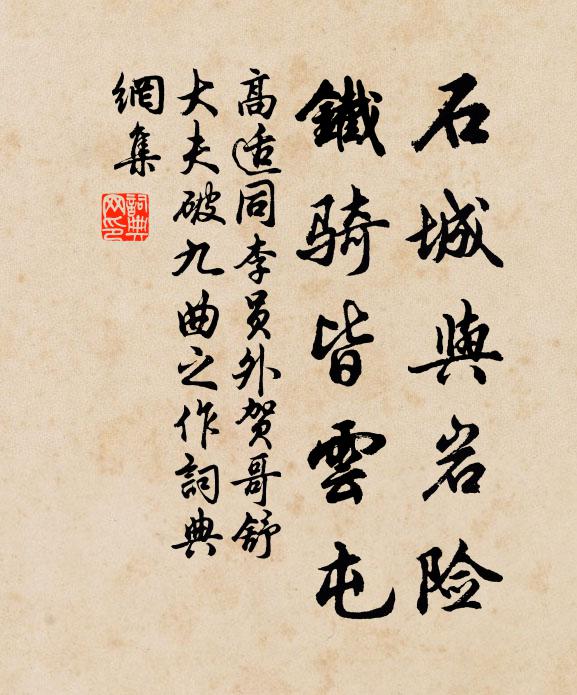 石城與岩险
鐵骑皆雲屯
高适同李员外贺哥舒
大夫破九曲之作詞典
網集
詞典
网印